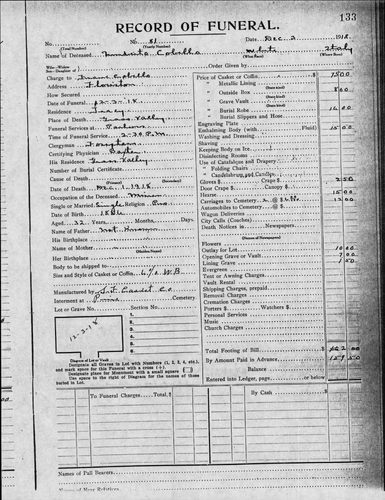 133
RECORD OF FUNERAL.
No. No. 81 Dec 2 1918
(Total Number) (Yearly Number)
Name of Deceased White Italy
(What Race) (Where Born)
Wife-Widow
Son-Daughter of Order Given by
Charge to
Address
How Secured
Date of Funeral 12-3-18
Residence
Place of Death Grass Valley
Funeral Services at Parlors
Time of Funeral Service 2-30 P.M.
Clergyman
Certifying Physician
His Residence Grass Valley
Number of Burial Certificate
Cause of Death
(Primary)
Date of Death Dec 1918
(Secondary)
Occupation of the Deceased Miner
Single or Married Single Religion
Date of Birth 1886
Age 32 Years Months, Days
Name of Father
His Birthplace
Name of Mother
Her Birthplace
Body to be shipped to
Size and Style of Casket or Coffin
Manufactured by S.F. Casket Co
Interment at Cemetery
Lot or Grave No. Section No.
1.
2.
3.
4.
5.
6.
12-3-18
Diagram of Lot or Vault
Designate all Graves in Lot with Numbers (1, 2, 3, 4, etc.), and mark space for this Funeral with a cross (+).
Designate place for Monument with a small square
Use space to the right of Diagram for the names of those buried in Lot.
Price of Casket or Coffin 75 00
" Metallic Lining
(State kind)
" Outside Box 5 00
(State kind)
" Grave Vault
(State kind)
" Burial Robe
(State kind)
" Burial Slippers and Hose
Engraving Plate
Embalming Body (with Fluid) 15 00
Washing and Dressing
Shaving
Keeping Body on Ice
Disinfecting Rooms
Use of Catafalque and Drapery
" Folding Chairs
" Candelabrum and Candles
Gloves $ Crape $ 2 50
Door Crape $ Canopy $
Hearse 15 00
Carriages to Cemetery 12 00
Automobiles to Cemetery
Wagon Deliveries
City Calls or Coaches
Death Notices in Newspapers
(Names of Newspapers)
Flowers
Outlay for Lot 10 00
Opening Grave or Vault 7 00
Lining Grave 1 50
Evergreen
Tent or Awning Charges
Vault Rental
Shipping Charges, prepaid
Removal Charges
Cremation Charges
Porters $ Watchers $
Personal Services
Music
Church Charges
Total Footing of Bill
By Amount Paid in Advance
Balance
Entered into Ledger, page or below.
To Funeral Charges, Total,
By Cash
Names of Pall Bearers